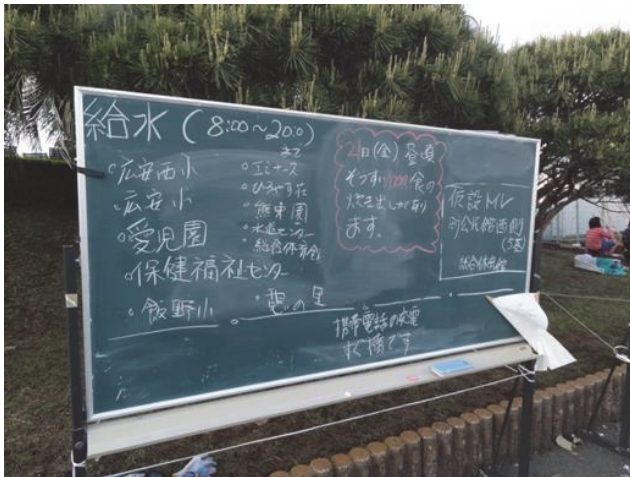 給水(8:00〜20:0)
まで
・広安西小
・広安小
・愛児園
・保健福祉センター
・飯野小
・エミナース
・ひろやす荘
・熊東園
・水処センター
・総合体育館
・憩の里
21日(金)昼頃
ぞうすい1000食の
炊き出しがあり
ます。
仮設トイレ
公民館西側
(5基)
総合体育館
携帯電話の充電
すぐ横です